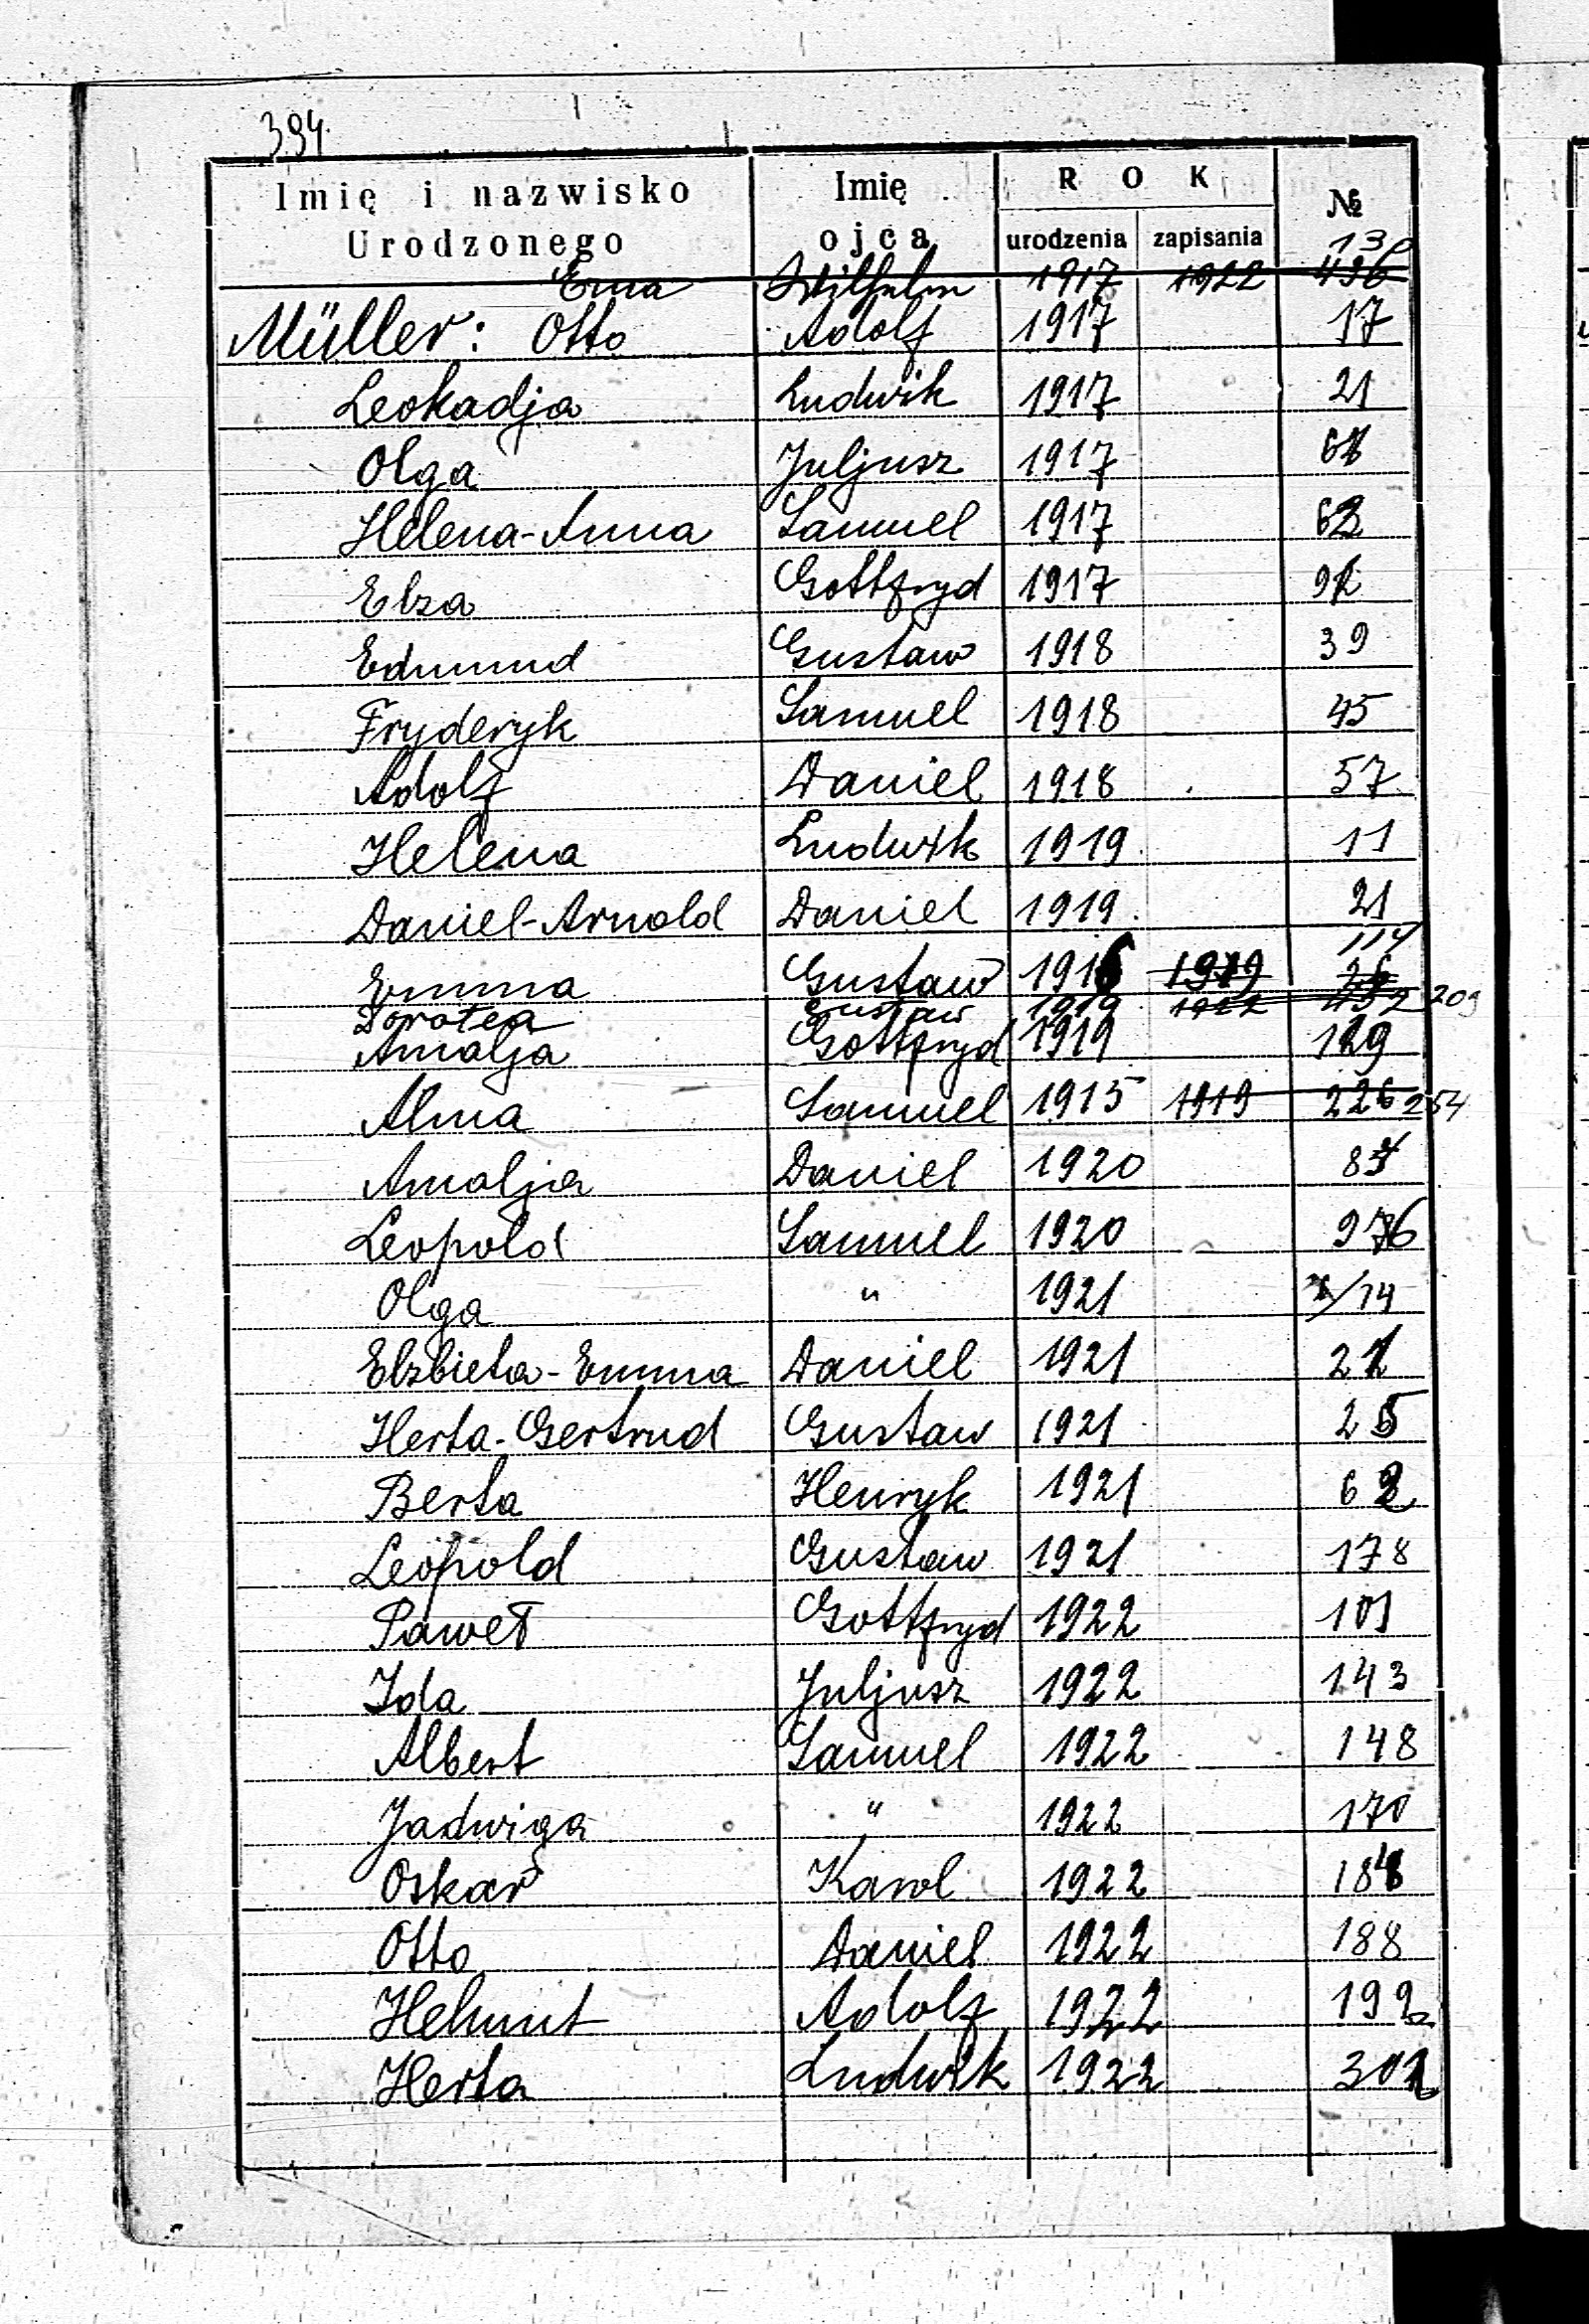 394.
Imię i nazwisko Urodzonego Imię ojca ROK urodzenia zapisania №
Erna Wilhelm 1917 1922 436 130
Müller: Otto Adolf 1917 17
Leokadja Ludwik 1917 21
Olga Juljusz 1917 61
Helena-Anna Samuel 1917 62
Elza Gottfryd 1917 91
Edmund Gustaw 1918 39
Fryderyk Samuel 1918 45
Adolf Daniel 1918 57
Helena Ludwik 1919 11
Daniel-Arnold Daniel 1919 21
Emma Gustaw 1916 1919 114
Dorotea Gustaw 1919 1922 452 209
Amalja Gottfryd 1919 129
Alma Samuel 1915 1919 226 254
Amalja Daniel 1920 84
Leopold Samuel 1920 976
Olga " 1921 14
Elzbieta-Emma Daniel 1921 21
Herta-Gertrud Gustaw 1921 25
Berta Henryk 1921 62
Leopold Gustaw 1921 178
Paweł Gottfryd 1922 101
Ida Juljusz 1922 143
Albert Samuel 1922 148
Jadwiga " 1922 170
Oskar Karol 1922 184
Otto Daniel 1922 188
Helmut Adolf 1922 192
Herta Ludwik 1922 302